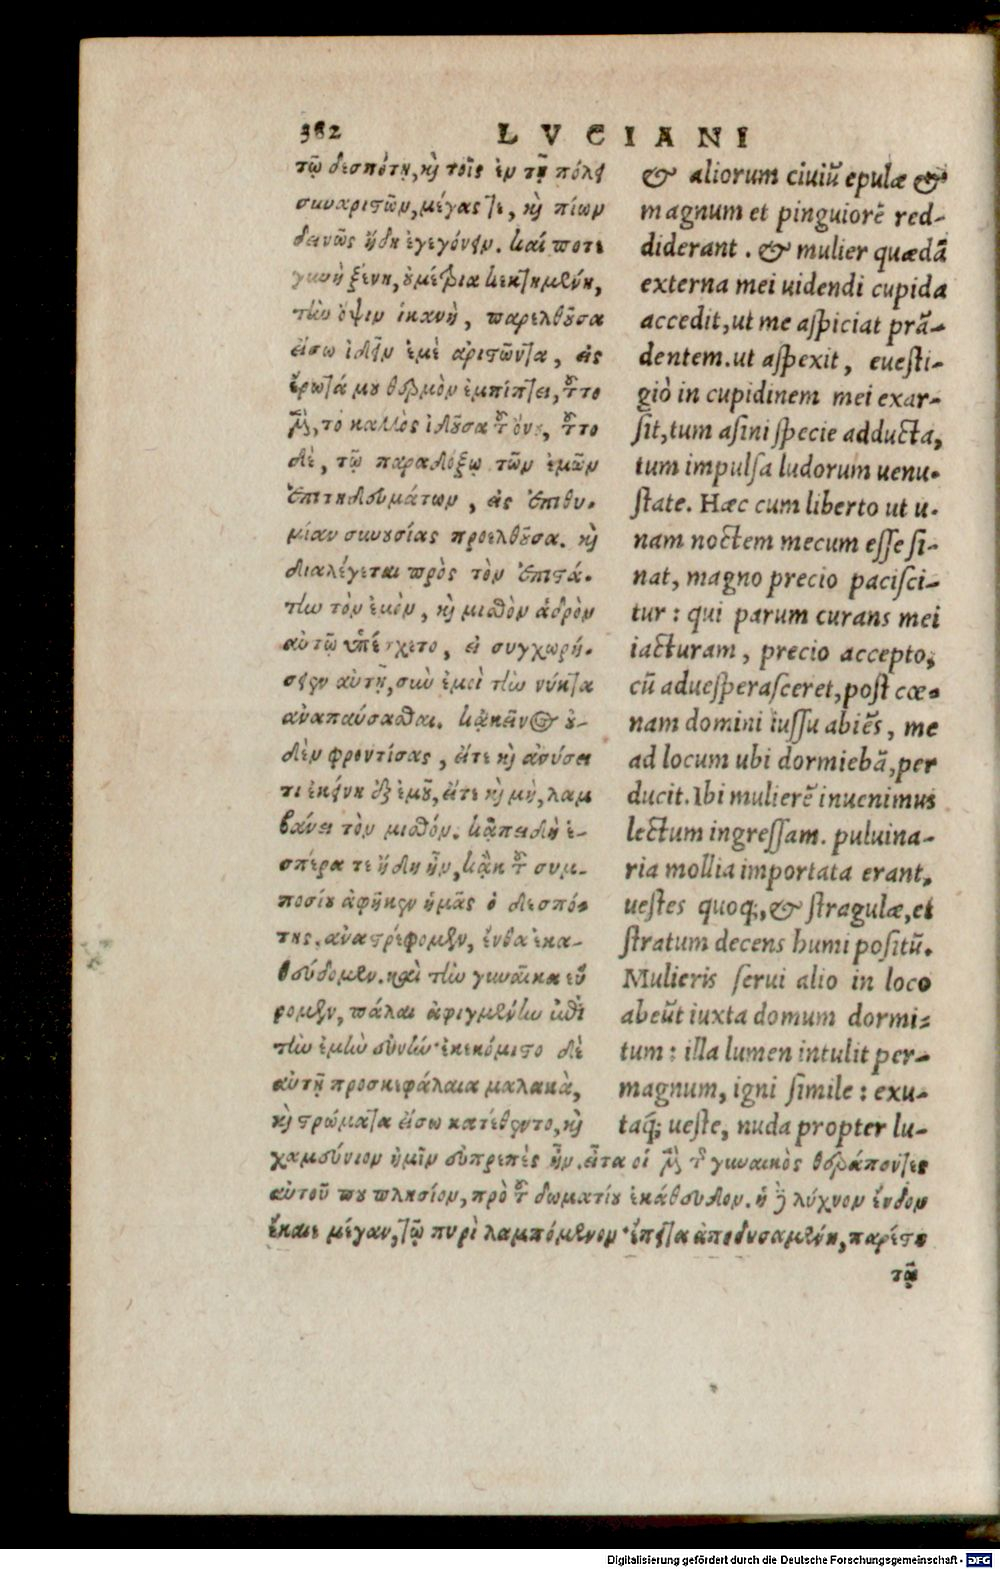 382 LVCIANI
τῷ δεσπότῃ, καὶ τοῖς ἐν τῇ πόλει
συναριστῶν, μέγας τε, καὶ πίων
δεινῶς ἤδη ἐγεγόνειν. καί ποτε
γυνὴ ξένη, οὐ μέτρια κεκτημένη,
τὴν ὄψιν ἱκανὴ, παρελθοῦσα
εἴσω ἰδεῖν ἐμὲ ἀριστῶντα, εἰς
ἔρωτά μου θερμὸν ἐμπίπτει, τοῦτο
μὲν, τὸ καλλὸς ἰδοῦσα τοῦ ὄνου, τοῦτο
δὲ, τῷ παραδόξῳ τῶν ἐμῶν
ἐπιτηδευμάτων, εἰς ἐπιθυ-
μίαν συνουσίας προελθοῦσα. καὶ
διαλέγεται πρὸς τὸν ἐπιστά-
την τὸν ἐμὸν, καὶ μισθὸν ἁδρὸν
αὐτῷ ὑπέσχετο, εἰ συγχωρή-
σειεν αὐτῇ, σὺν ἐμοὶ τὴν νύκτα
ἀναπαύσασθαι. κἀκεῖνος οὐ-
δὲν φροντίσας, εἴτε καὶ ἀνύσει
τι ἐκείνη ἐξ ἐμοῦ, εἴτε καὶ μὴ, λαμ
βάνει τὸν μισθόν. κἀπειδὴ ἑ-
σπέρα τε ἤδη ἦν, κἀκ τοῦ συμ-
ποσίου ἀφῆκεν ἡμᾶς ὁ δεσπό-
της, ἀναστρέφομεν, ἔνθα ἐκα-
θεύδομεν. καὶ τὴν γυναῖκα εὕ
ρομεν, πάλαι ἀφιγμένην ἐπὶ
τὴν ἐμὴν εὐνήν· ἐκεκόμιστο δὲ
αὐτῇ προσκεφάλαια μαλακὰ,
καὶ στρώματα εἴσω κατέθεντο, καὶ
χαμεύνιον ἡμῖν εὐπρεπὲς ἦν. εἶτα οἱ μὲν τῆς γυναικὸς θεράποντες
αὐτοῦ που πλησίον, πρὸ τοῦ δωματίου ἐκάθευδον. ἡ δὲ λύχνον ἔνδον
ἔκαιε μέγαν, τῷ πυρὶ λαμπόμενον· ἔπειτα ἀποδυσαμένη, παρέστη
τῷ
& aliorum ciuiũ epulæ &
magnum et pinguiorẽ red-
diderant. & mulier quædã
externa mei uidendi cupida
accedit, ut me aspiciat prã-
dentem. ut aspexit, euesti-
giò in cupidinem mei exar-
sit, tum asini specie adducta,
tum impulsa ludorum uenu-
state. Hæc cum liberto ut u-
nam noctem mecum esse si-
nat, magno precio pacisci-
tur: qui parum curans mei
iacturam, precio accepto,
cũ aduesperasceret, post cœ-
nam domini iussu abiẽs, me
ad locum ubi dormiebã, per
ducit. Ibi mulierẽ inuenimus
lectum ingressam. puluina-
ria mollia importata erant,
uestes quoq;, & stragulæ, et
stratum decens humi positũ.
Mulieris serui alio in loco
abeũt iuxta domum dormi-
tum: illa lumen intulit per-
magnum, igni simile: exu-
taq́; ueste, nuda propter lu-
Digitalisierung gefördert durch die Deutsche Forschungsgemeinschaft - DFG